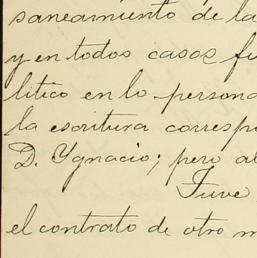 saneamiento de la
y en todos casos fu
lítico en lo persona
la escritura correspo
D. Ygnacio; pero al
Tuve
el contrato de otro m